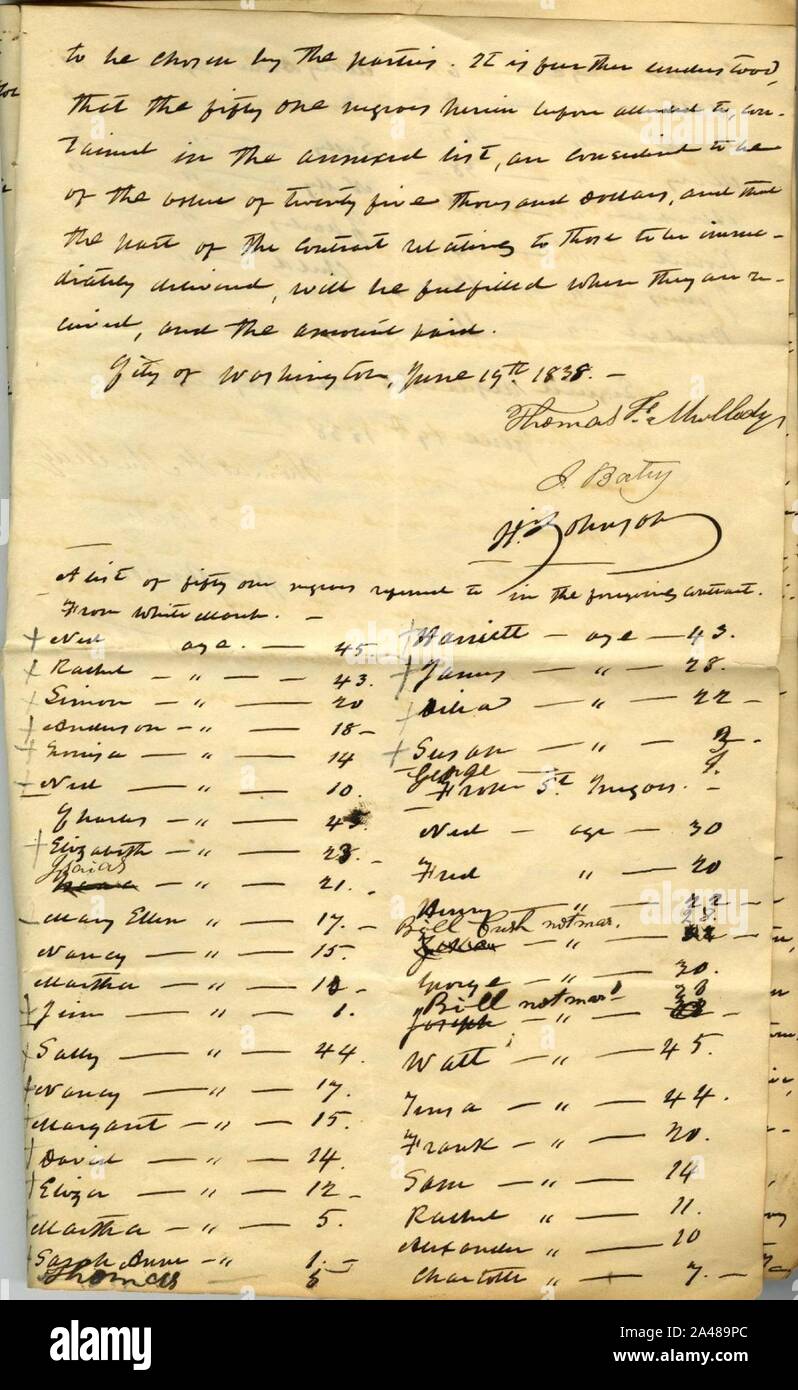 to be chosen by the parties. It is further understood,
that the fifty one negroes herein before alluded to, con-
tained in the annexed list, are considered to be
of the value of twenty five thousand Dollars, and that
the part of the contract relatives to those to be imme-
diately delivered, will be fulfilled when they are re-
ceived, and the amount paid.
City of Washington, June 19th. 1838. —
Thomas F. Mulledy
J. Batey
H. Johnson
A list of fifty one negroes referred to in the foregoing contract.
From White Marsh. —
Ned age. — 45.
Rachel — " — 43.
Simon — " — 20
Anderson — " — 18 —
Louisa — " — 14
Ned — " — 10.
Charles — " —
Elizabeth — " — 23. —
Isaias
— " — 21. —
Mary Ellen " — 17. —
Nancy — " — 15.
Martha — " —
Jim — " — 1.
Sally — " — 44.
Nancy — " — 17.
Margaret — " — 15.
David — " — 14.
Eliza — " — 12 —
Martha — " — 5.
Sarah Anne — " 1. —
Thomas — 5
Harriett — age — 43.
James — " — 28.
Dilia — " — 22 —
Susan — " —
George
From St. Inigoes. —
Ned — age — 30
Fred " — 20
Henry — " — 22 —
Bill Cush not mar. 28.
— " —
George — " — 20.
"Bill not mar 20
Joseph — " —
Watt — " — 45.
Teresa — " — 44.
Frank — " — 20.
Sam — " — 14
Rachel " — 11.
Alexander " — 10
Charlotte " — 7. —
alamy
alamy
alamy
a
alamy
Image ID: 2A489PC
www.alamy.com